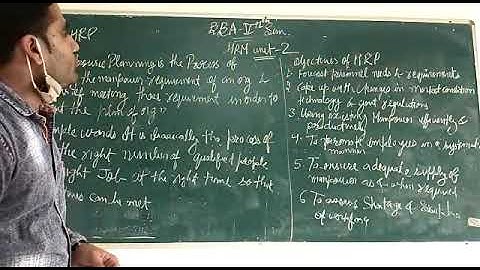 HRP
BBA-V Sem.
HRM unit-2
Planning is the Process of
the manpower requirement of an org &
meeting these requirement in order to
the plan of org"
words It is basically the process of
the right number of qualified people
right Job at the right time so that
can be met
objectives of HRP
1. Forecast personnel needs & requirements
2. Cope up with changes in market condition
technology & govt regulations
3. Using existing Manpower efficiently &
productively
4. To promote employees in a systematic
manner
5. To ensure adequate supply of
manpower as & when required
6. To assess Shortage &
of working